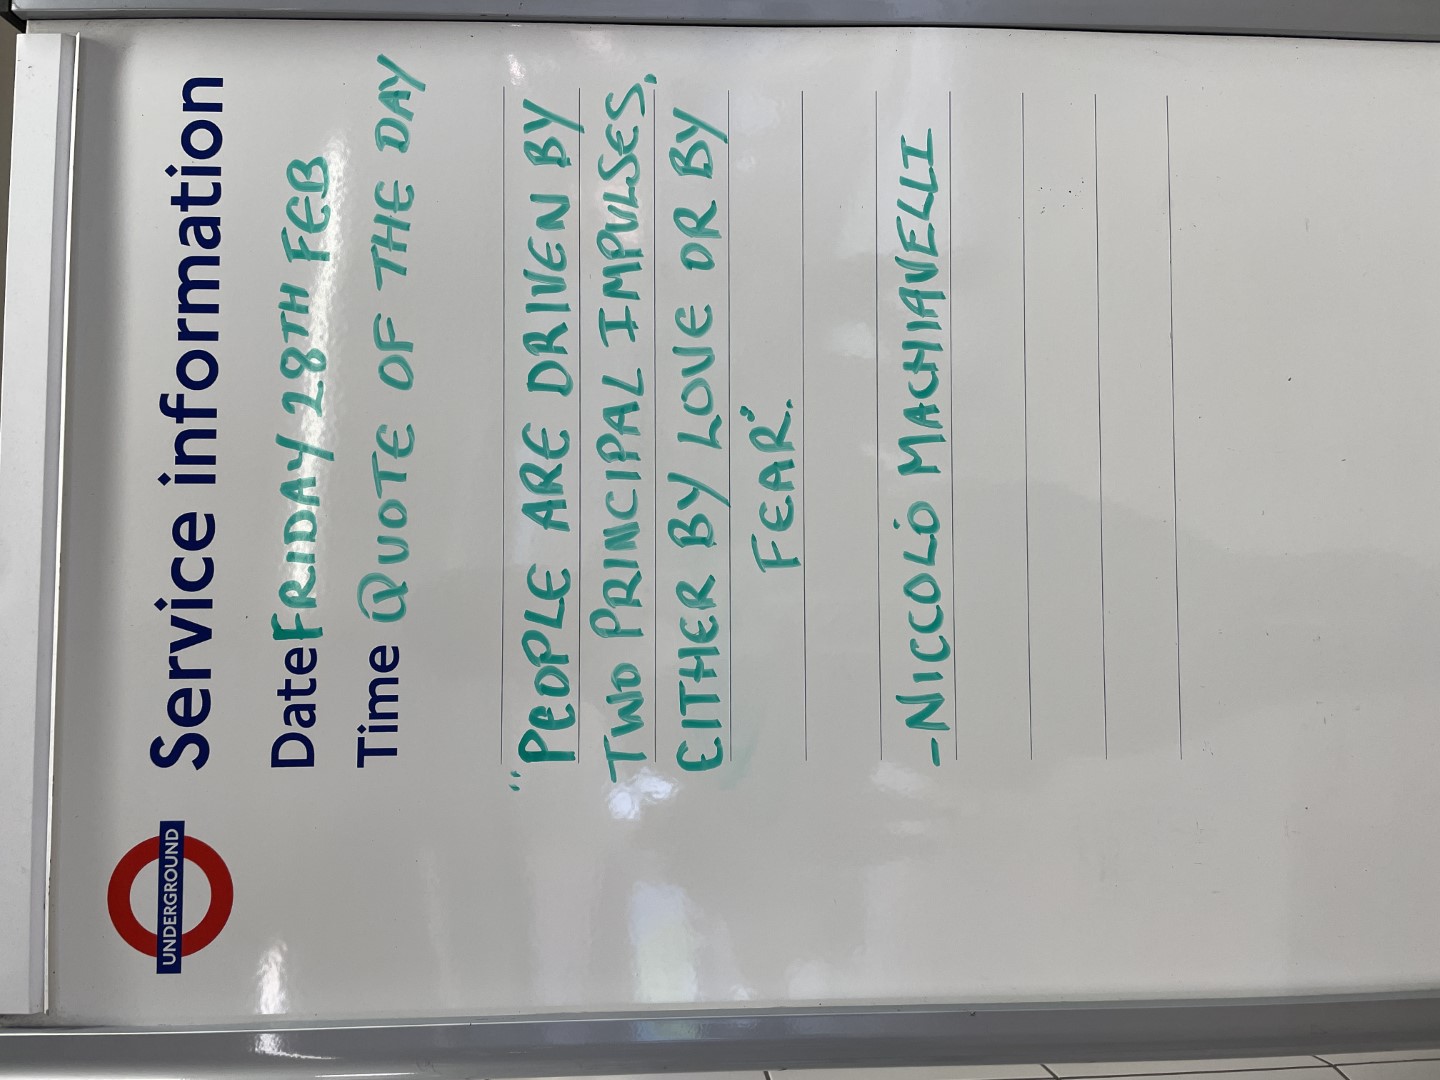 UNDERGROUND
Service information
Date FRIDAY 28TH FEB
Time QUOTE OF THE DAY
"PEOPLE ARE DRIVEN BY
TWO PRINCIPAL IMPULSES,
EITHER BY LOVE OR BY
FEAR".
-NICCOLÒ MACHIAVELLI